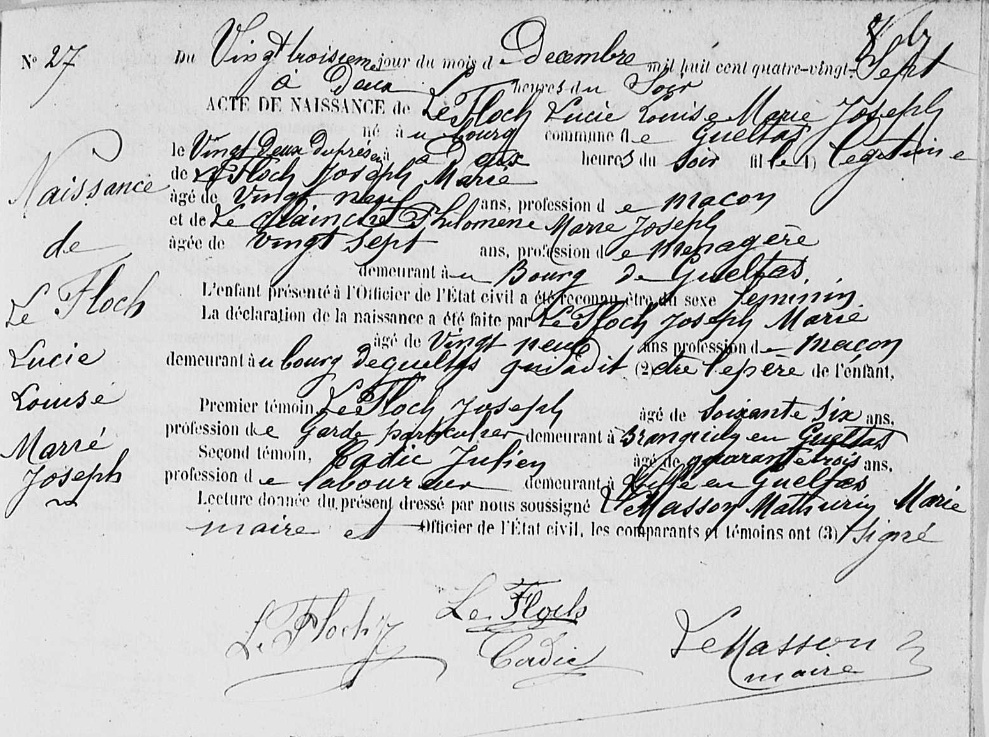 N° 27
Du Vingt troisiem jour du mois de Decembre mil huit cent quatre-vingt-Sept
à Deux heures du Soir
ACTE DE NAISSANCE de Le Floch Lucie Louise Marie Joseph
né au bourg commune de Gueltas
le Vingt Deux du présent à Deux heures du soir fille (1) legitime
de Le Floch Joseph Marie
âgé de Vingt neuf ans, profession de maçon
et de Le Philomene Marie Joseph
âgée de Vingt sept ans, profession de menagère
demeurant au Bourg de Gueltas
L'enfant présenté à l'Officier de l'État civil a été reconnu être du sexe Feminin
La déclaration de la naissance a été faite par Le Floch Joseph Marie
âgé de Vingt neuf ans profession de maçon
demeurant au bourg de gueltas qui a dit (2) etre le père de l'enfant,
Premier témoin, Le Floch Joseph âgé de soixante six ans,
profession de Garde particulier demeurant à Branguily en Gueltas
Second témoin, Cadic Julien âgé de quarante trois ans,
profession de laboureur demeurant à en Gueltas
Lecture donnée du présent dressé par nous soussigné Le Masson Mathurin Marie
maire et Officier de l'État civil, les comparants et témoins ont (3) signé
Naissance
de
Le Floch
Lucie
Louise
Marie
Joseph
Le Floch J
Le Floch
Cadic
Le Masson
maire